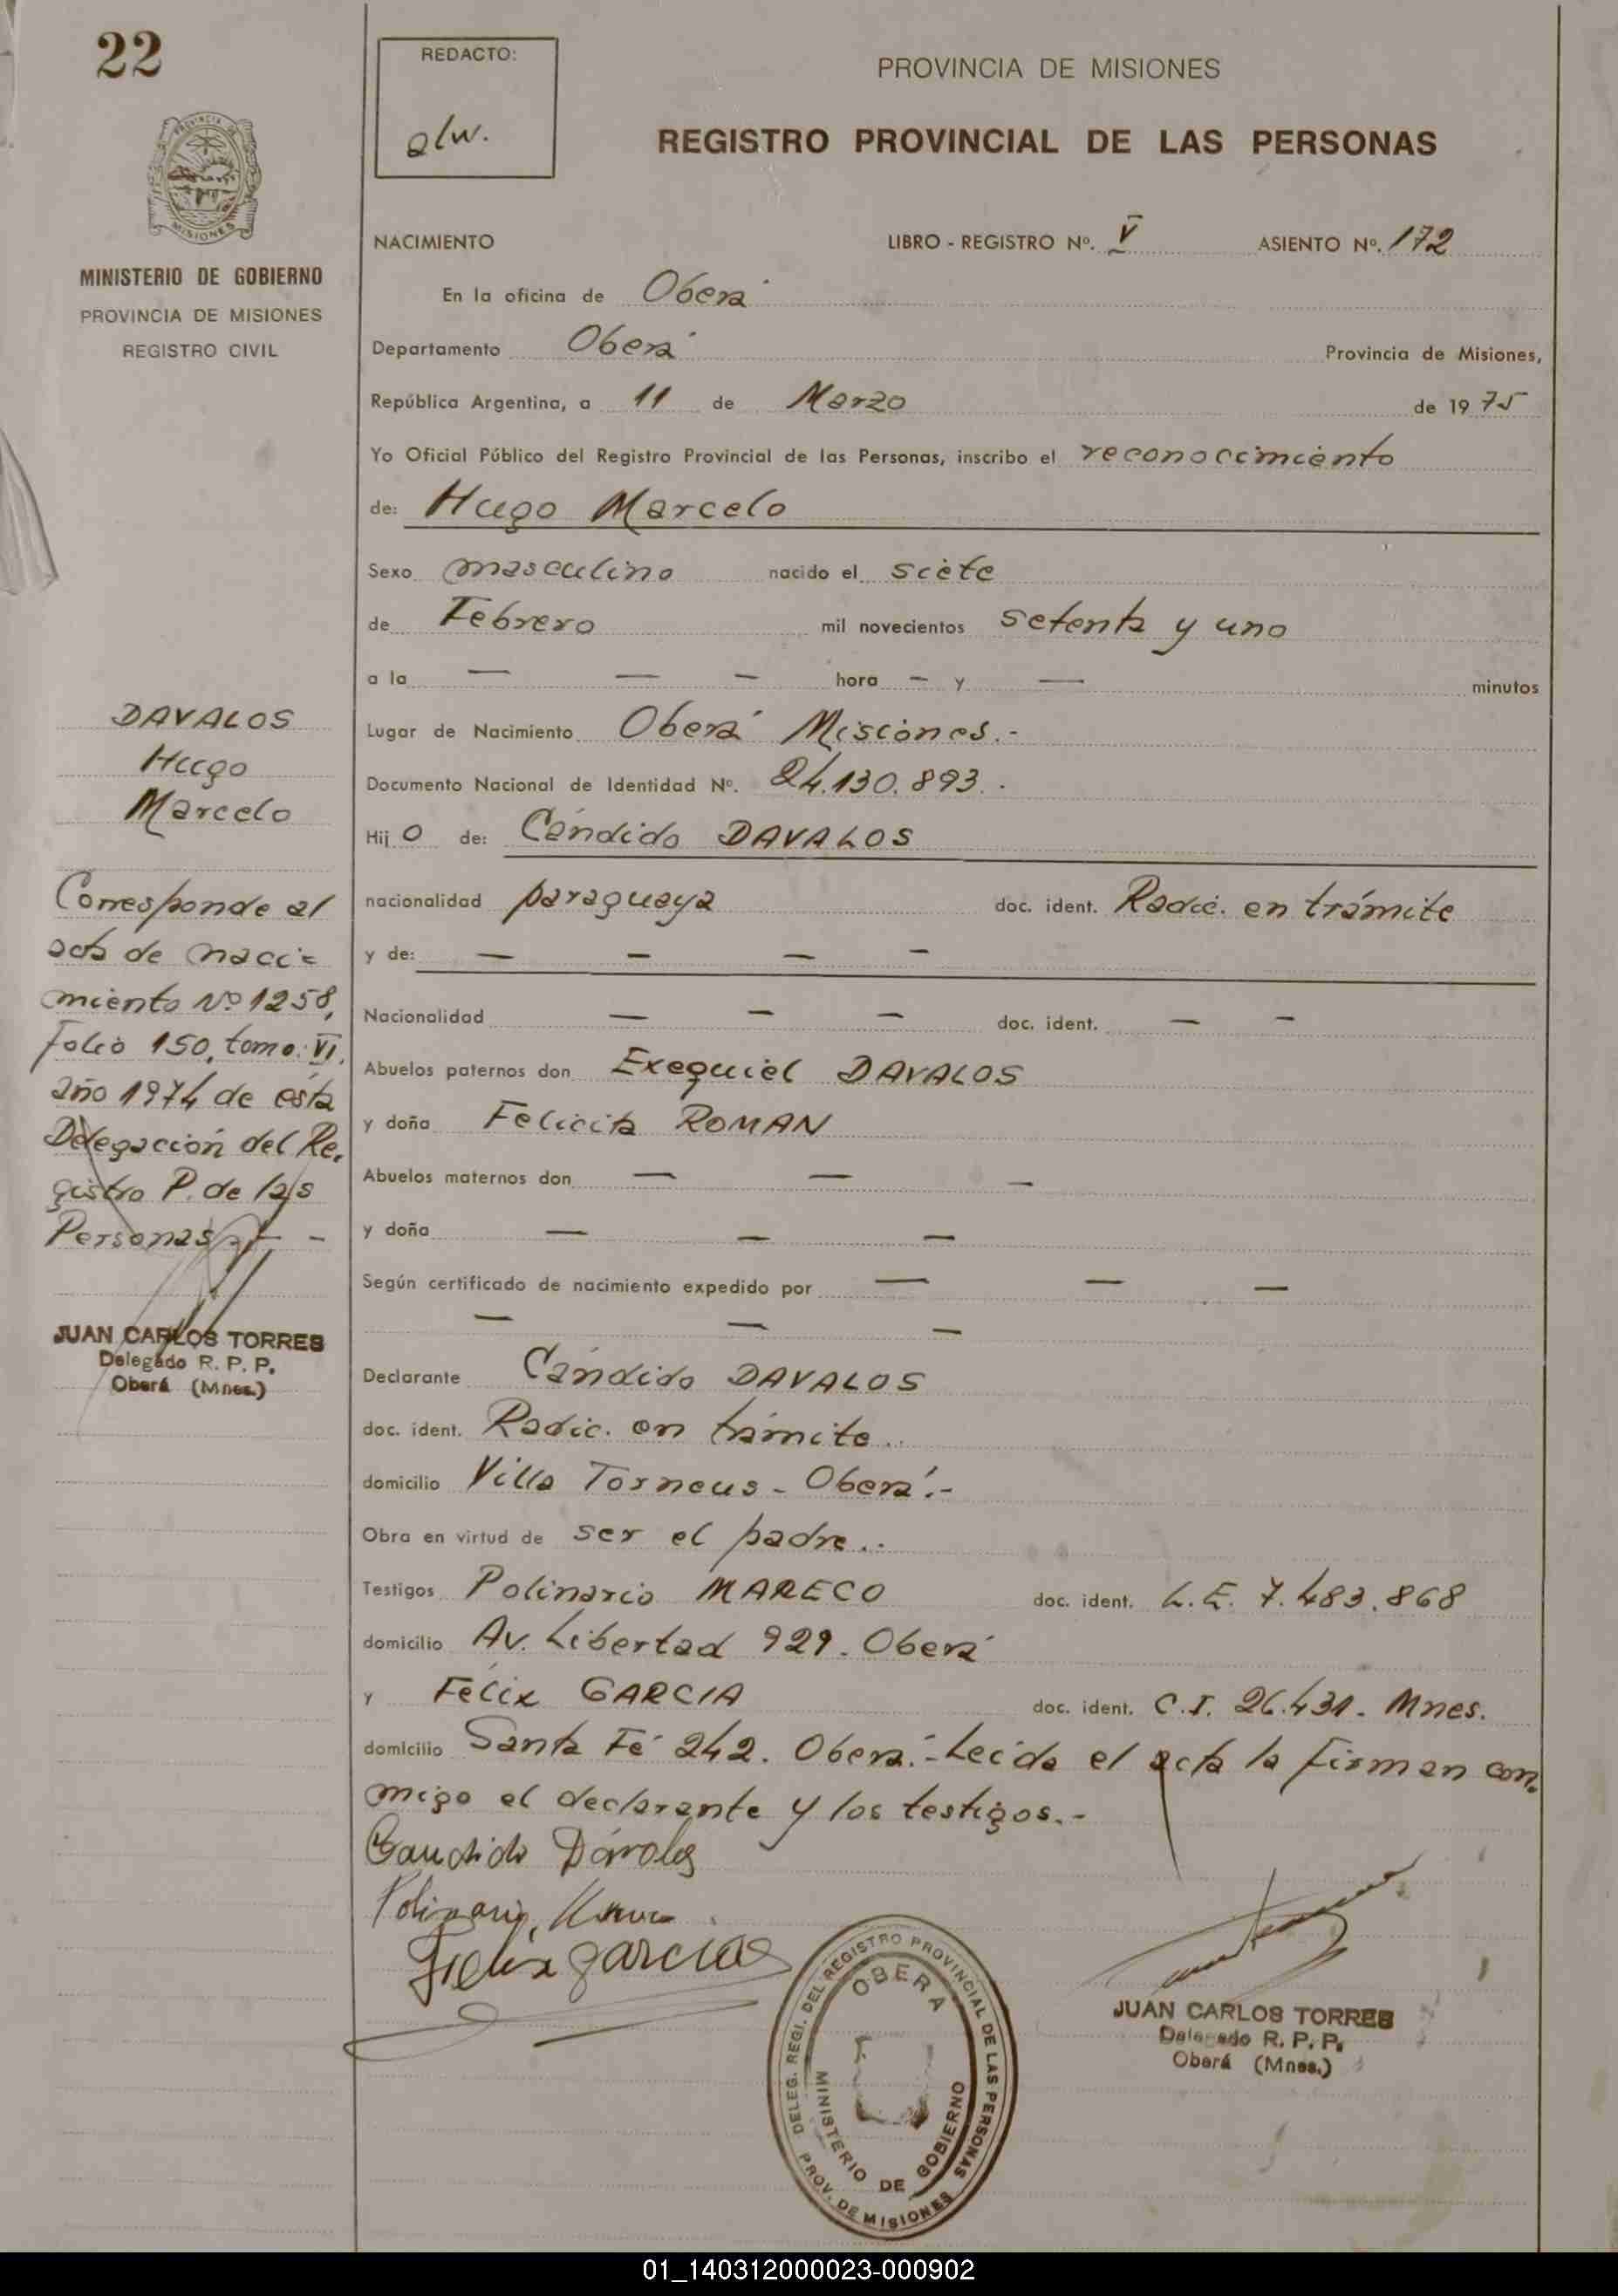 22
REDACTO:
alw.
PROVINCIA DE MISIONES
REGISTRO PROVINCIAL DE LAS PERSONAS
PROVINCIA DE
MISIONES
MINISTERIO DE GOBIERNO
PROVINCIA DE MISIONES
REGISTRO CIVIL
NACIMIENTO LIBRO - REGISTRO Nº. V ASIENTO Nº. 172
En la oficina de Oberá
Departamento Oberá Provincia de Misiones,
República Argentina, a 11 de Marzo de 1975
Yo Oficial Público del Registro Provincial de las Personas, inscribo el reconocimiento
de: Hugo Marcelo
Sexo masculino nacido el siete
de Febrero mil novecientos setenta y uno
a la — — — hora — y — minutos
Lugar de Nacimiento Oberá Misiones.-
Documento Nacional de Identidad Nº. 24.130.893.-
Hijo de: Cándido DAVALOS
nacionalidad paraguaya doc. ident. Radic. en trámite
y de: — — — —
Nacionalidad — — — doc. ident. — —
Abuelos paternos don Exequiel DAVALOS
y doña Felicita ROMAN
Abuelos maternos don — — —
y doña — — —
Según certificado de nacimiento expedido por — — —
— — —
Declarante Cándido DAVALOS
doc. ident. Radic. en trámite..
domicilio Villa Torneus - Oberá.-
Obra en virtud de ser el padre..
Testigos Polinario MARECO doc. ident. L.E. 7.483.868
domicilio Av. Libertad 929. Oberá
y Félix GARCIA doc. ident. C.I. 26.431. Mnes.
domicilio Santa Fé 242. Oberá.- Leida el acta la firman con
migo el declarante y los testigos.-
Candido Dávalos
Polinario
Fielix garcias
DAVALOS
Hugo
Marcelo
Corresponde al
acta de naci-
miento Nº 1258,
Folio 150, tomo: VI,
año 1974 de ésta
Delegación del Re.
gistro P. de las
Personas.- -
JUAN CARLOS TORRES
Delegado R. P. P.
Oberá (Mnes.)
DELEG. REGI. DEL REGISTRO PROVINCIAL DE LAS PERSONAS
PROV. DE MISIONES
OBERA
MINISTERIO DE GOBIERNO
JUAN CARLOS TORRES
Delegado R. P. P.
Oberá (Mnes.)
01_140312000023-000902